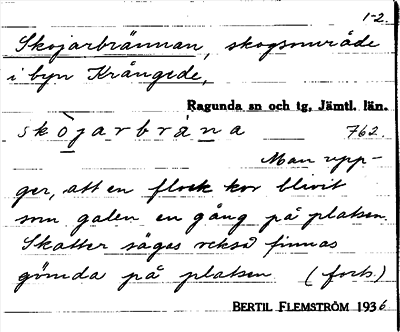 1-2.
Skojarbrännan, skogsområde
i byn Krångede,
Ragunda sn och tg, Jämtl. län.
skòjarbràna 762.
Man upp-
ger, att en flock kor blivit
som galen en gång på platsen.
Skatter säges också finnas
gömda på platsen. (forts.)
BERTIL FLEMSTRÖM 1936